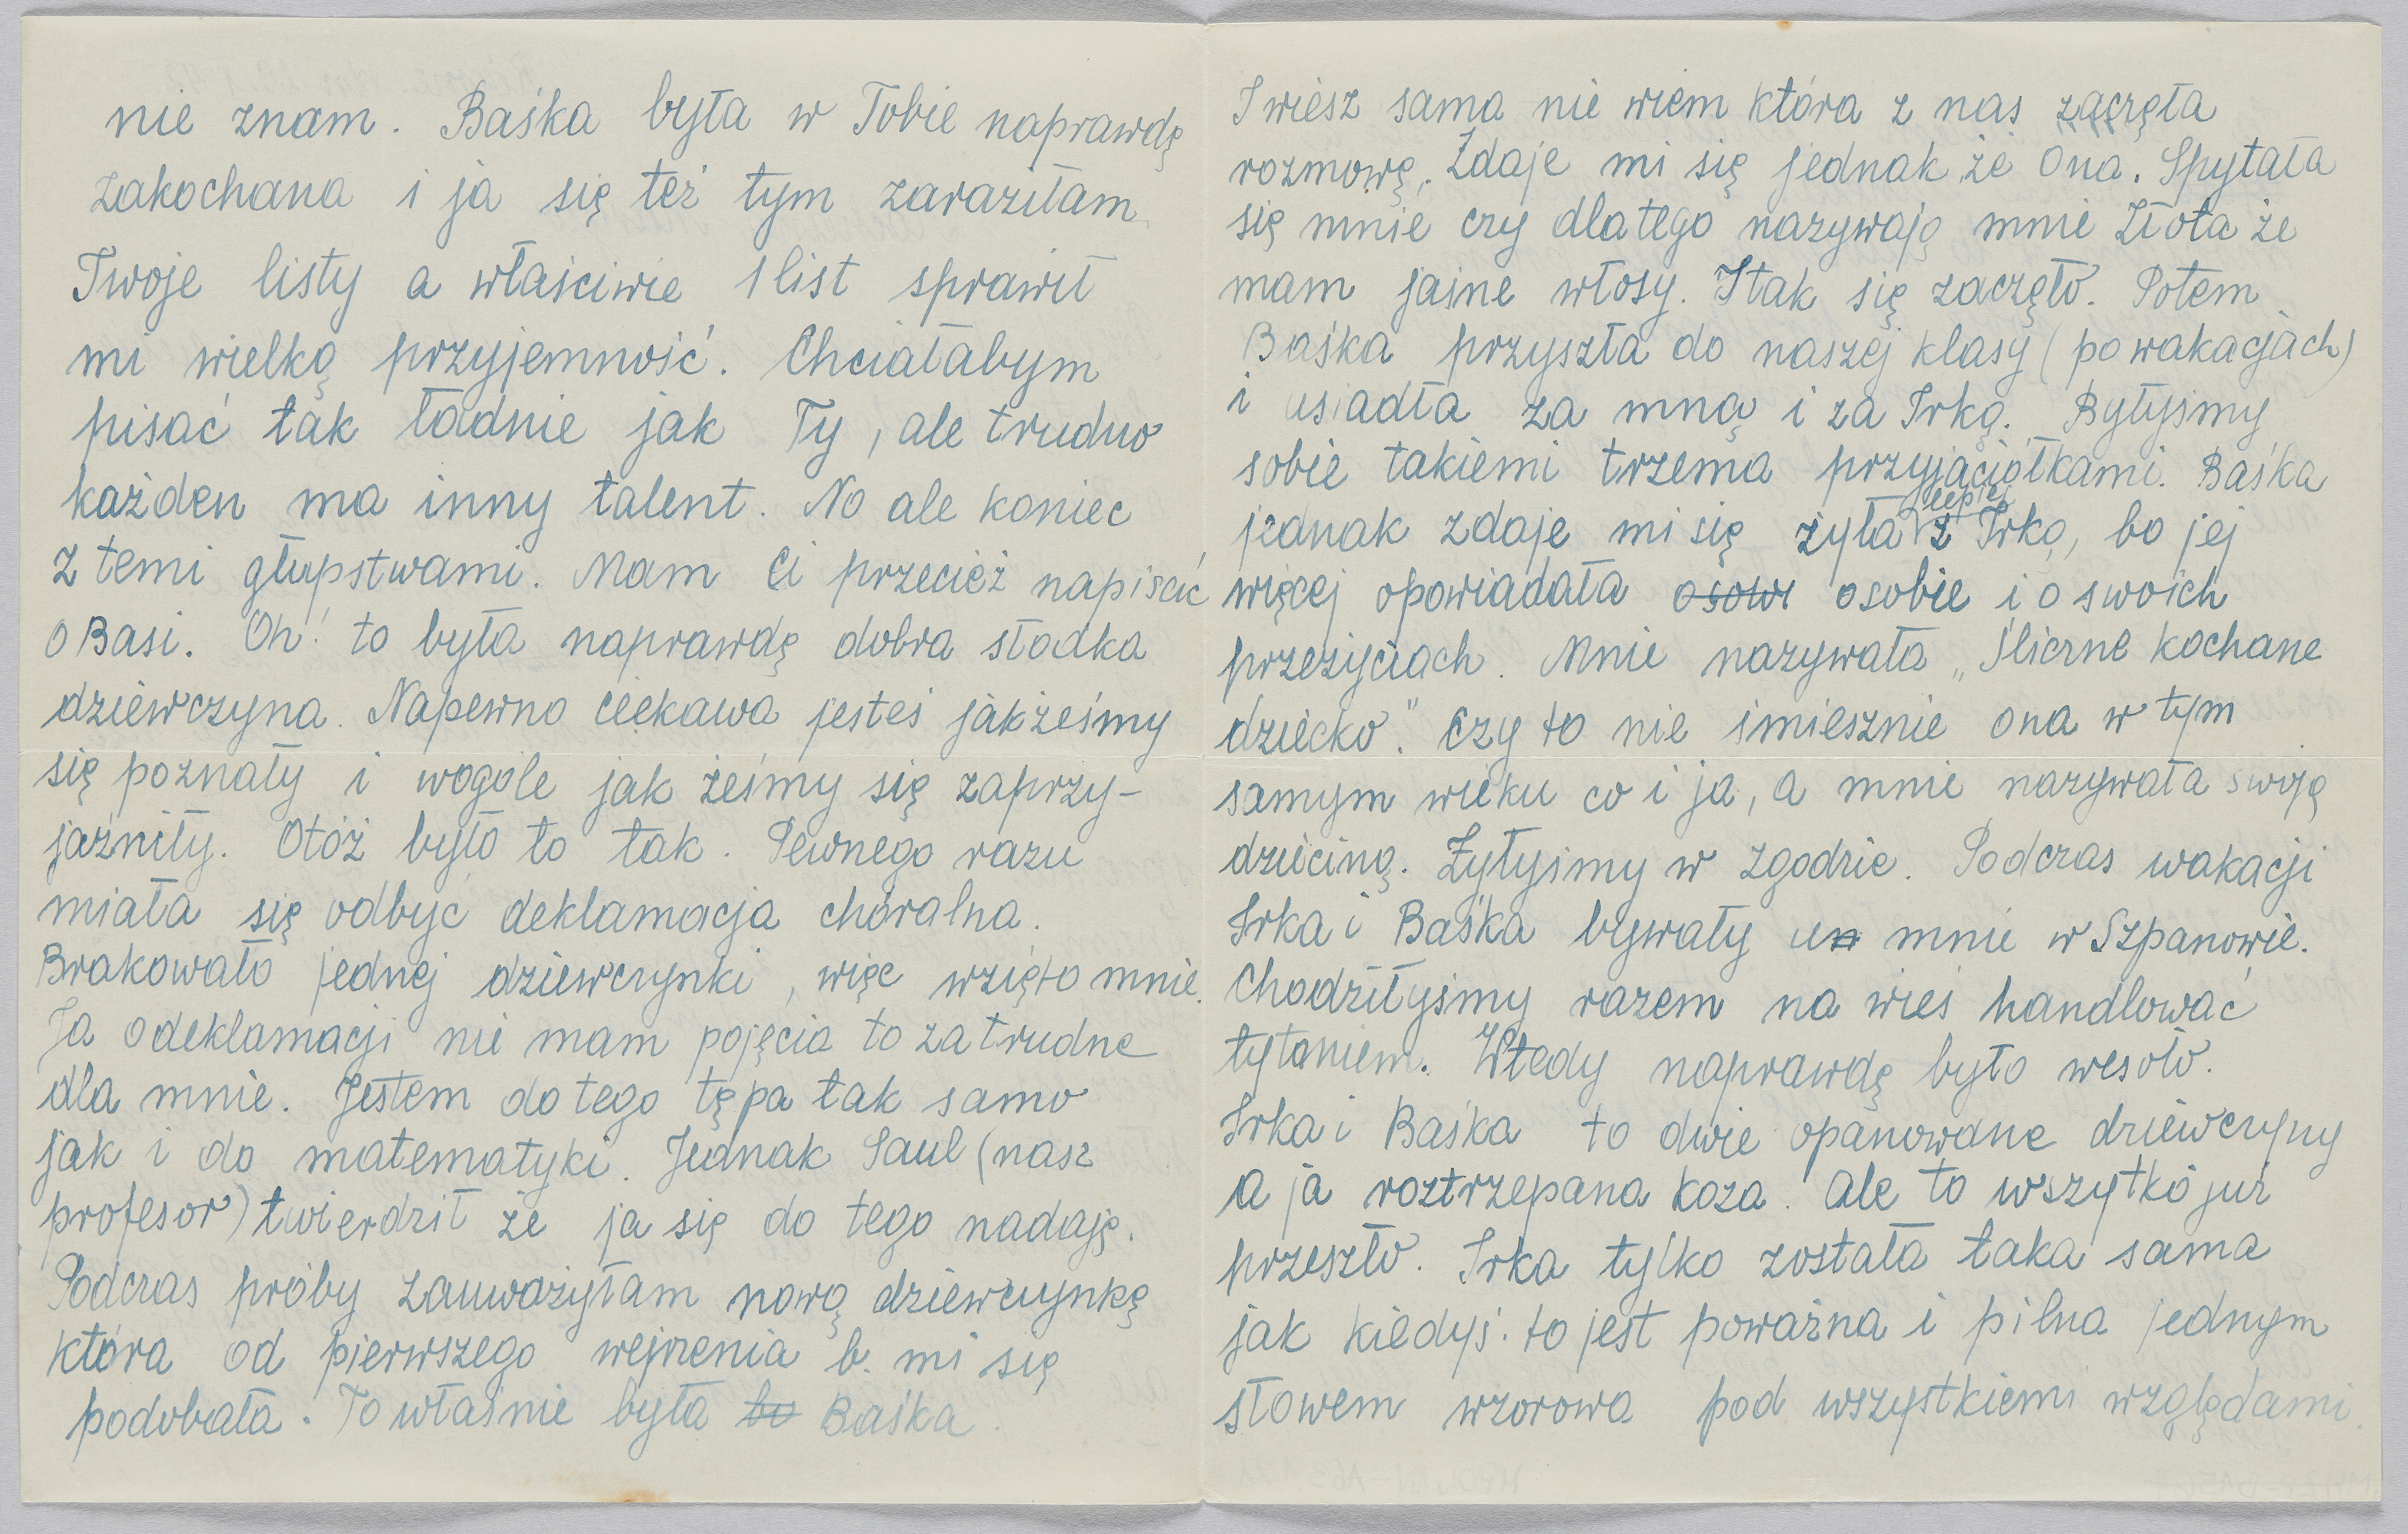 nie znam. Baśka była w Tobie naprawdę
zakochana i ja się też tym zaraziłam
Twoje listy a właściwie 1 list sprawił
mi wielką przyjemność. Chciałabym
pisać tak ładnie jak Ty, ale trudno
każden ma inny talent. No ale koniec
z temi głupstwami. Mam Ci przecież napisać
o Basi. Oh! to była naprawdę dobra słodka
dziewczyna. Napewno ciekawa jesteś jakżeśmy
się poznały i wogóle jak żeśmy się zaprzy-
jaźniły. Otóż było to tak. Pewnego razu
miała się odbyć deklamacja chóralna.
Brakowało jednej dziewczynki, więc wzięto mnie.
Ja o deklamacji nie mam pojęcia to za trudne
dla mnie. Jestem do tego tępa tak samo
jak i do matematyki. Jednak Saul (nasz
profesor) twierdził że ja się do tego nadaję.
Podczas próby zauważyłam nową dziewczynkę
która od pierwszego wejrzenia b. mi się
podobała. To właśnie była to Baśka.
I wiesz sama nie wiem która z nas zaczęła
rozmowę. Zdaje mi się jednak że Ona. Spytała
się mnie czy dlatego nazywają mnie Złota że
mam jasne włosy. I tak się zaczęło. Potem
Baśka przyszła do naszej klasy (po wakacjach)
i usiadła za mną i za Irką. Byłyśmy
sobie takiemi trzema przyjaciółkami. Baśka
jednak zdaje mi się żyła lepiej z Irką, bo jej
więcej opowiadała osowi o sobie i o swoich
przeżyciach. Mnie nazywała „Śliczne kochane
dziecko." Czy to nie śmiesznie ona w tym
samym wieku co i ja, a mnie nazywała swoją
dzieciną. Żyłyśmy w zgodzie. Podczas wakacji
Irka i Baśka bywały u mnie w Szpanowie.
Chodziłyśmy razem na wieś handlować
tytoniem. Wtedy naprawdę było wesoło.
Irka i Baśka to dwie opanowane dziewczyny
a ja roztrzepana koza. Ale to wszytko już
przeszło. Irka tylko została taka sama
jak kiedyś. to jest poważna i pilna jednym
słowem wzorowa pod wszystkiemi względami.